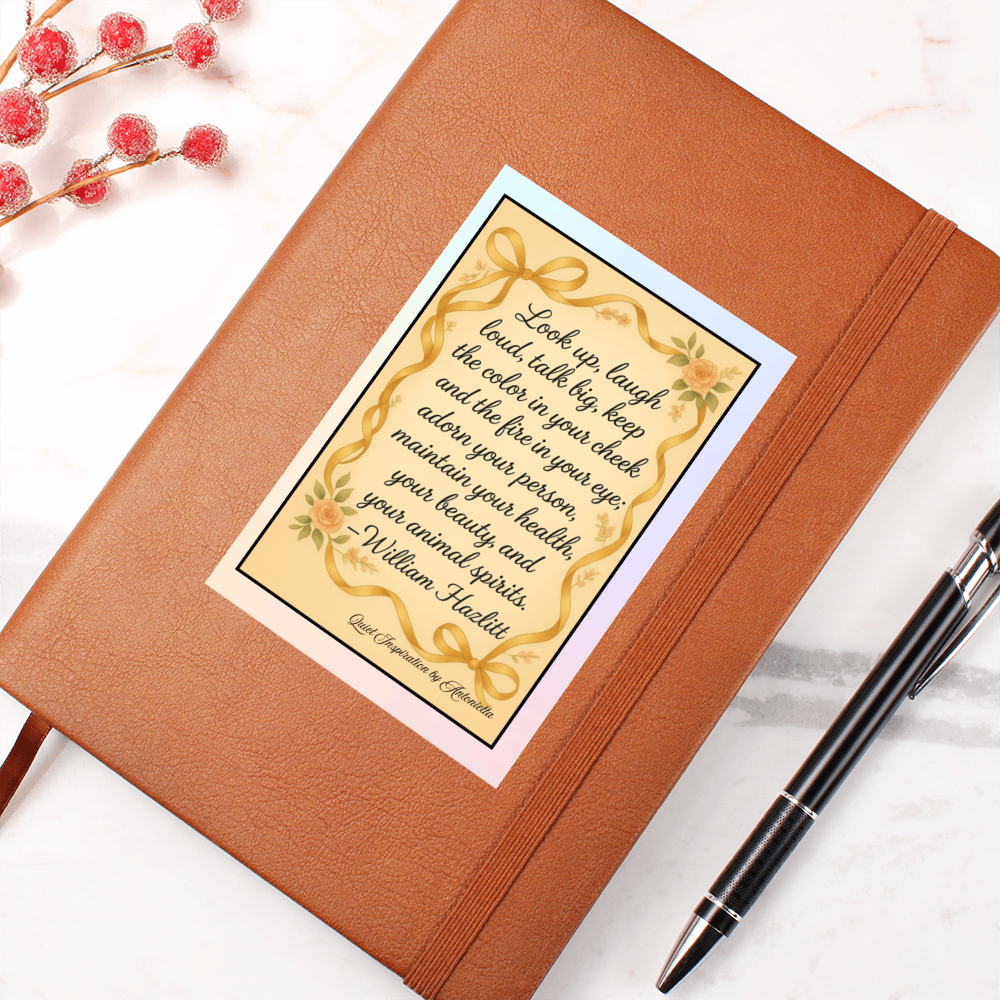 Look up, laugh
loud, talk big, keep
the color in your cheek
and the fire in your eye;
adorn your person,
maintain your health,
your beauty, and
your animal spirits.
—William Hazlitt
Quiet Inspiration by Antonietta